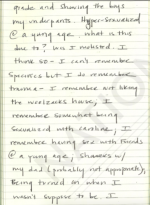 grade and showing the boys
my underpants. Hyper-Sexualized
@ a young age. What is this
due to? Was I molested. I
think so - I can't remember
Specifics but I do remember
trauma - I remember not liking
the house, I
remember somewhat being
Sexualized with Caroline, I
remember having sex with friends
@ a young age, showers w/
my dad (probably not appropriate),
Being turned on when I
wasn't suppose to be. I